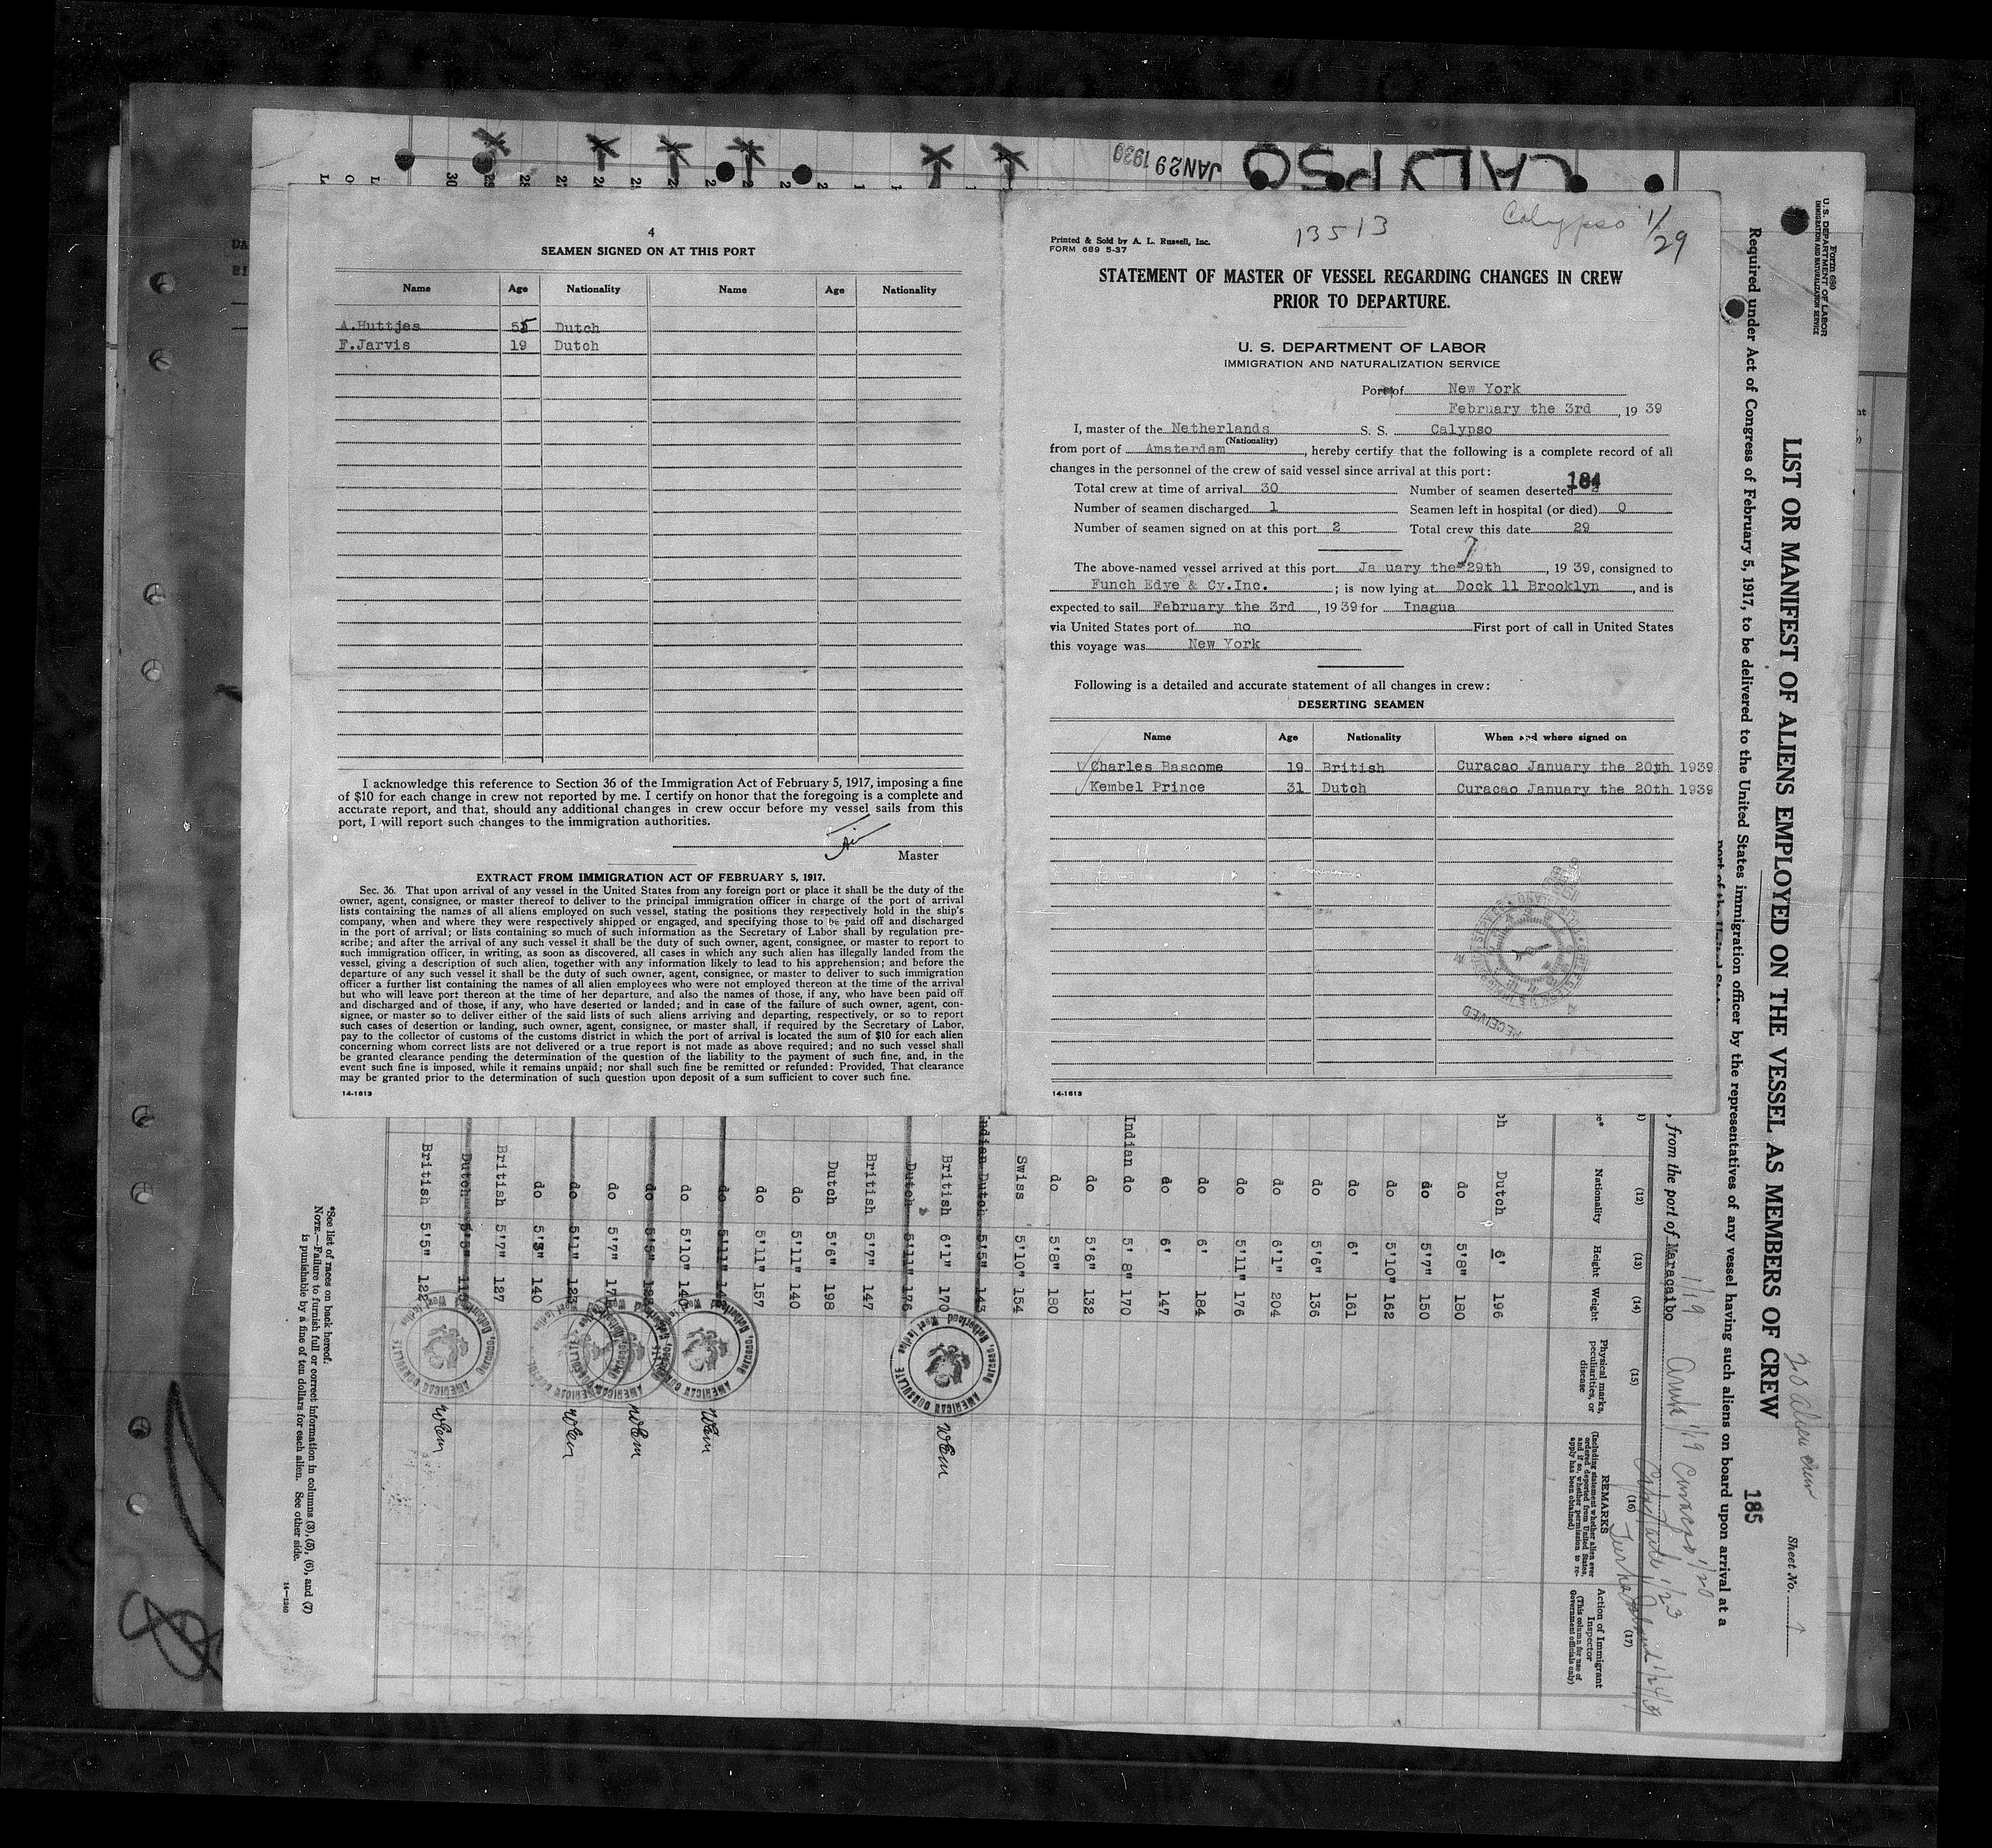 CALYPSO
JAN 29 1939
4
SEAMEN SIGNED ON AT THIS PORT
Name Age Nationality Name Age Nationality
A.Huttjes 55 Dutch
F.Jarvis 19 Dutch
I acknowledge this reference to Section 36 of the Immigration Act of February 5, 1917, imposing a fine
of $10 for each change in crew not reported by me. I certify on honor that the foregoing is a complete and
accurate report, and that, should any additional changes in crew occur before my vessel sails from this
port, I will report such changes to the immigration authorities.
Master
EXTRACT FROM IMMIGRATION ACT OF FEBRUARY 5, 1917.
Sec. 36. That upon arrival of any vessel in the United States from any foreign port or place it shall be the duty of the
owner, agent, consignee, or master thereof to deliver to the principal immigration officer in charge of the port of arrival
lists containing the names of all aliens employed on such vessel, stating the positions they respectively hold in the ship's
company, when and where they were respectively shipped or engaged, and specifying those to be paid off and discharged
in the port of arrival; or lists containing so much of such information as the Secretary of Labor shall by regulation pre-
scribe; and after the arrival of any such vessel it shall be the duty of such owner, agent, consignee, or master to report to
such immigration officer, in writing, as soon as discovered, all cases in which any such alien has illegally landed from the
vessel, giving a description of such alien, together with any information likely to lead to his apprehension; and before the
departure of any such vessel it shall be the duty of such owner, agent, consignee, or master to deliver to such immigration
officer a further list containing the names of all alien employees who were not employed thereon at the time of the arrival
but who will leave port thereon at the time of her departure, and also the names of those, if any, who have been paid off
and discharged and of those, if any, who have deserted or landed; and in case of the failure of such owner, agent, con-
signee, or master so to deliver either of the said lists of such aliens arriving and departing, respectively, or so to report
such cases of desertion or landing, such owner, agent, consignee, or master shall, if required by the Secretary of Labor,
pay to the collector of customs of the customs district in which the port of arrival is located the sum of $10 for each alien
concerning whom correct lists are not delivered or a true report is not made as above required; and no such vessel shall
be granted clearance pending the determination of the question of the liability to the payment of such fine, and, in the
event such fine is imposed, while it remains unpaid; nor shall such fine be remitted or refunded: Provided, That clearance
may be granted prior to the determination of such question upon deposit of a sum sufficient to cover such fine.
14-1613
Calypso 1/29
13513
Printed & Sold by A. L. Russell, Inc.
FORM 689 5-37
STATEMENT OF MASTER OF VESSEL REGARDING CHANGES IN CREW
PRIOR TO DEPARTURE.
U. S. DEPARTMENT OF LABOR
IMMIGRATION AND NATURALIZATION SERVICE
Port of New York
February the 3rd, 1939
I, master of the Netherlands S. S. Calypso
(Nationality)
from port of Amsterdam, hereby certify that the following is a complete record of all
changes in the personnel of the crew of said vessel since arrival at this port:
184
Total crew at time of arrival 30 Number of seamen deserted
Number of seamen discharged 1 Seamen left in hospital (or died) 0
Number of seamen signed on at this port 2 Total crew this date 29
The above-named vessel arrived at this port January the 29th, 1939, consigned to
Funch Edye & Cy.Inc. ; is now lying at Dock 11 Brooklyn, and is
expected to sail February the 3rd, 1939 for Inagua
via United States port of no First port of call in United States
this voyage was New York
Following is a detailed and accurate statement of all changes in crew:
DESERTING SEAMEN
Name Age Nationality When and where signed on
Charles Bascome 19 British Curacao January the 20th 1939
Kembel Prince 31 Dutch Curacao January the 20th 1939
RECEIVED
14-1613
Form 689
U. S. DEPARTMENT OF LABOR
IMMIGRATION AND NATURALIZATION SERVICE
Sheet No. 1
LIST OR MANIFEST OF ALIENS EMPLOYED ON THE VESSEL AS MEMBERS OF CREW
185
Required under Act of Congress of February 5, 1917, to be delivered to the United States immigration officer by the representatives of any vessel having such aliens on board upon arrival at a
port of the United States
, from the port of Maracaibo 1/19 Aruba 1/19 Curacao 1/20
(12) (13) (14) (15) (16) (17)
Nationality Height Weight Physical marks, peculiarities, or disease REMARKS (Including statement whether alien ever ordered deported from United States, and if so, whether permission to re-apply has been obtained) Action of Immigrant Inspector (This column for use of Government officials only)
Dutch 6' 196
do 5'8" 180
do 5'7" 150
do 5'10" 162
do 6' 161
do 5'6" 136
do 6'1" 204
do 5'11" 176
do 6' 184
do 6' 147
Indian do 5' 8" 170
do 5'6" 132
do 5'8" 180
Swiss 5'10" 154
Indian Dutch 5'5" 143
British 6'1" 170
Dutch 5'11" 176
British 5'7" 147
Dutch 5'6" 198
do 5'11" 140
do 5'11" 157
do 5'11"
do 5'10" 140
do 5'5"
do 5'7" 171
do 5'1" 123
do 5'3" 140
British 5'7" 127
Dutch 5'5"
British 5'5" 122
AMERICAN CONSULATE
Curacao, Netherland West Indies
*See list of races on back hereof.
NOTE.—Failure to furnish full or correct information in columns (3), (5), (6), and (7)
is punishable by a fine of ten dollars for each alien. See other side.
14-1240